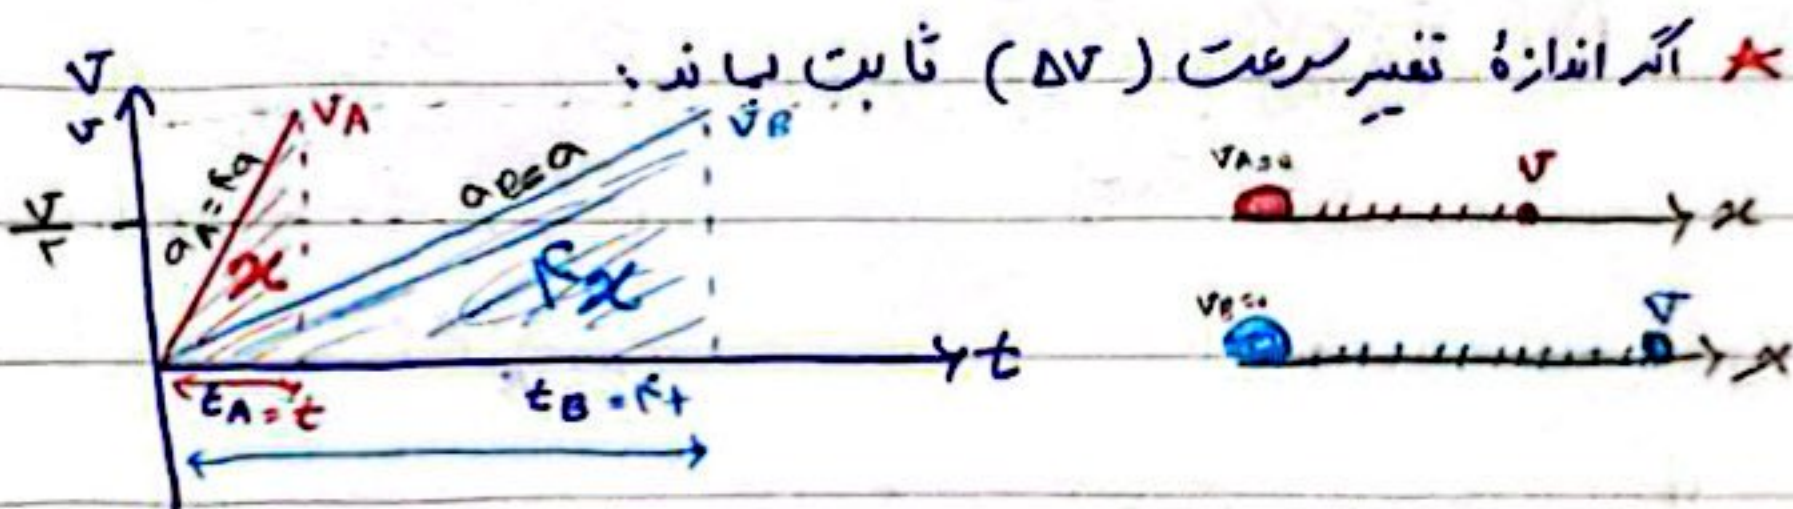 ★ اگر اندازهٔ تغییر سرعت (ΔV) ثابت بماند:
V
v
V/۲
V_A
V_B
a_A = ۴a
a_B = a
x
۴x
t
t_A = t
t_B = ۴t
V_A = ۰
V
x
V_B = ۰
V
x